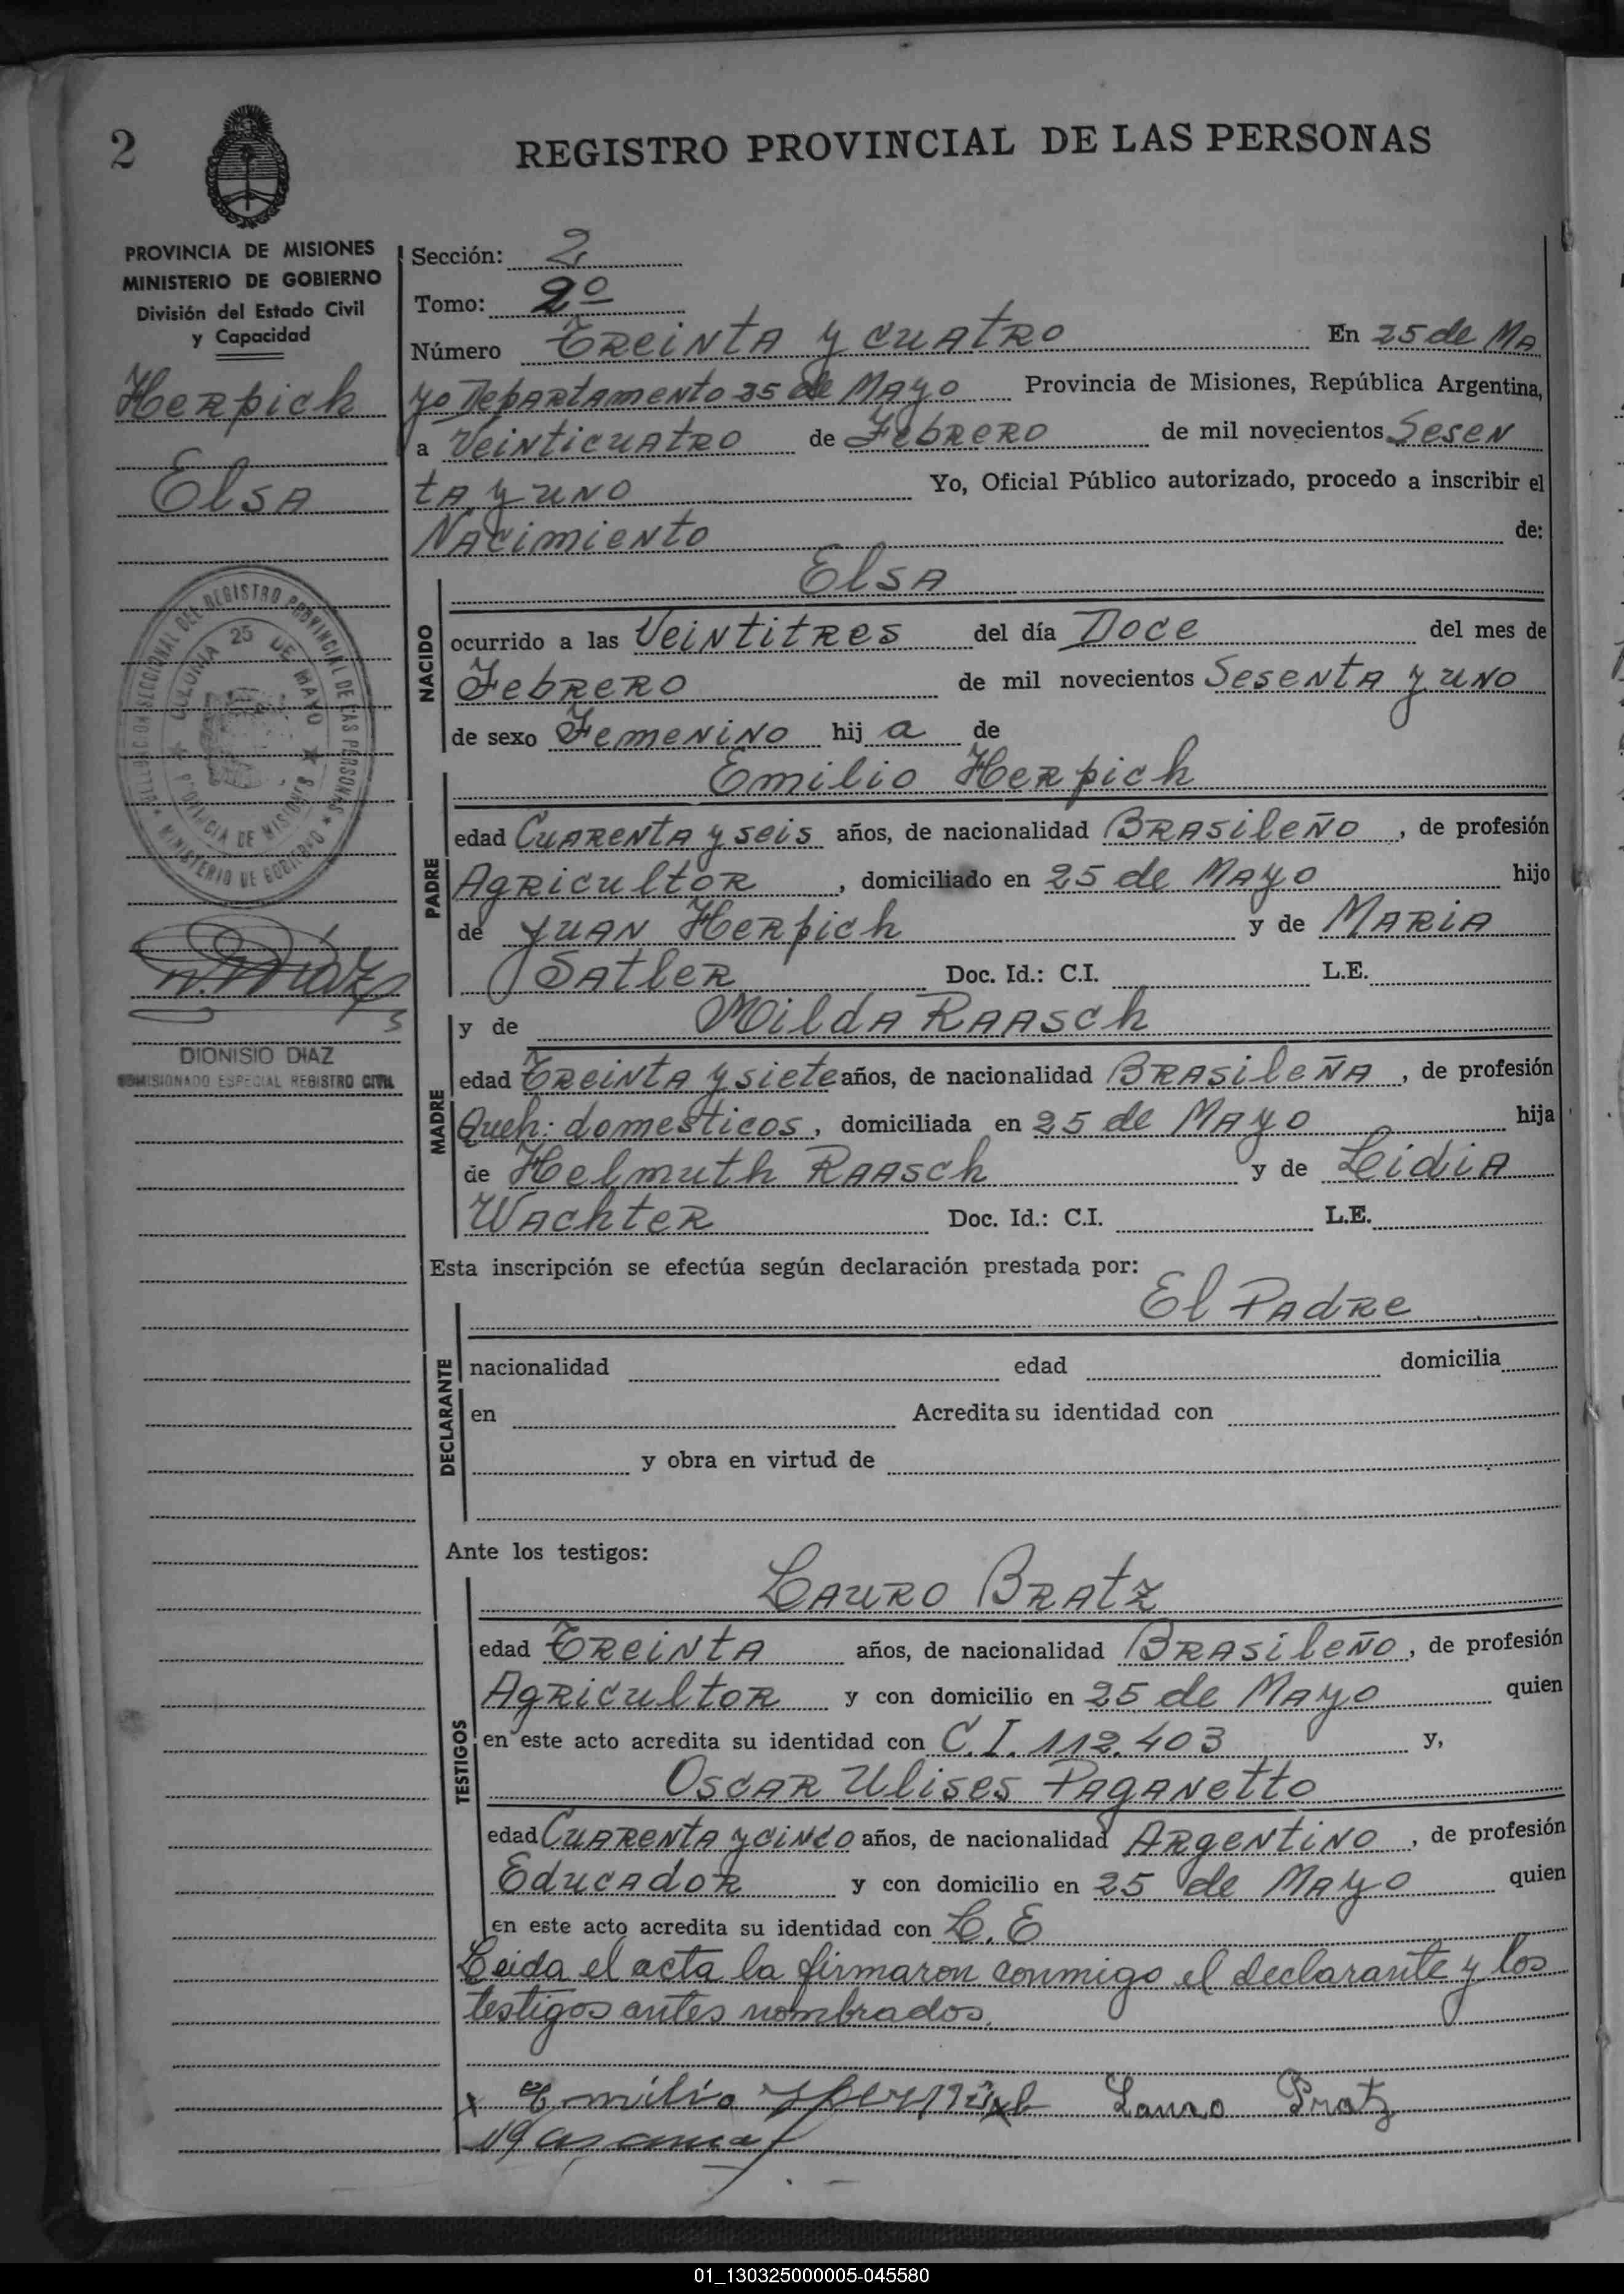 2
REGISTRO PROVINCIAL DE LAS PERSONAS
PROVINCIA DE MISIONES
MINISTERIO DE GOBIERNO
División del Estado Civil
y Capacidad
Herpich
Elsa
SECCIONAL DEL REGISTRO PROVINCIAL DE LAS PERSONAS
MINISTERIO DE GOBIERNO
COLONIA 25 DE MAYO
PROVINCIA DE MISIONES
DIONISIO DIAZ
COMISIONADO ESPECIAL REGISTRO CIVIL
Sección: 2
Tomo: 2º
Número Treinta y cuatro En 25 de Ma
yo Departamento 25 de Mayo Provincia de Misiones, República Argentina,
a Veinticuatro de Febrero de mil novecientos Sesen
ta y uno Yo, Oficial Público autorizado, procedo a inscribir el
Nacimiento de:
NACIDO
Elsa
ocurrido a las Veintitres del día Doce del mes de
Febrero de mil novecientos Sesenta y uno
de sexo Femenino hij a de
PADRE
Emilio Herpich
edad Cuarenta y seis años, de nacionalidad Brasileño, de profesión
Agricultor, domiciliado en 25 de Mayo hijo
de Juan Herpich y de Maria
Satler Doc. Id.: C.I. L.E.
MADRE
y de Milda Raasch
edad Treinta y siete años, de nacionalidad Brasileña, de profesión
Queh: domesticos, domiciliada en 25 de Mayo hija
de Helmuth Raasch y de Lidia
Wachter Doc. Id.: C.I. L.E.
Esta inscripción se efectúa según declaración prestada por:
DECLARANTE
El Padre
nacionalidad edad domicilia
en Acredita su identidad con
y obra en virtud de
Ante los testigos:
TESTIGOS
Lauro Bratz
edad Treinta años, de nacionalidad Brasileño, de profesión
Agricultor y con domicilio en 25 de Mayo quien
en este acto acredita su identidad con C.I. 112.403 y,
Oscar Ulises Paganetto
edad Cuarenta y cinco años, de nacionalidad Argentino, de profesión
Educador y con domicilio en 25 de Mayo quien
en este acto acredita su identidad con L.E
Leida el acta la firmaron conmigo el declarante y los
testigos antes nombrados.
x Emilio Lauro Pratz
01_130325000005-045580